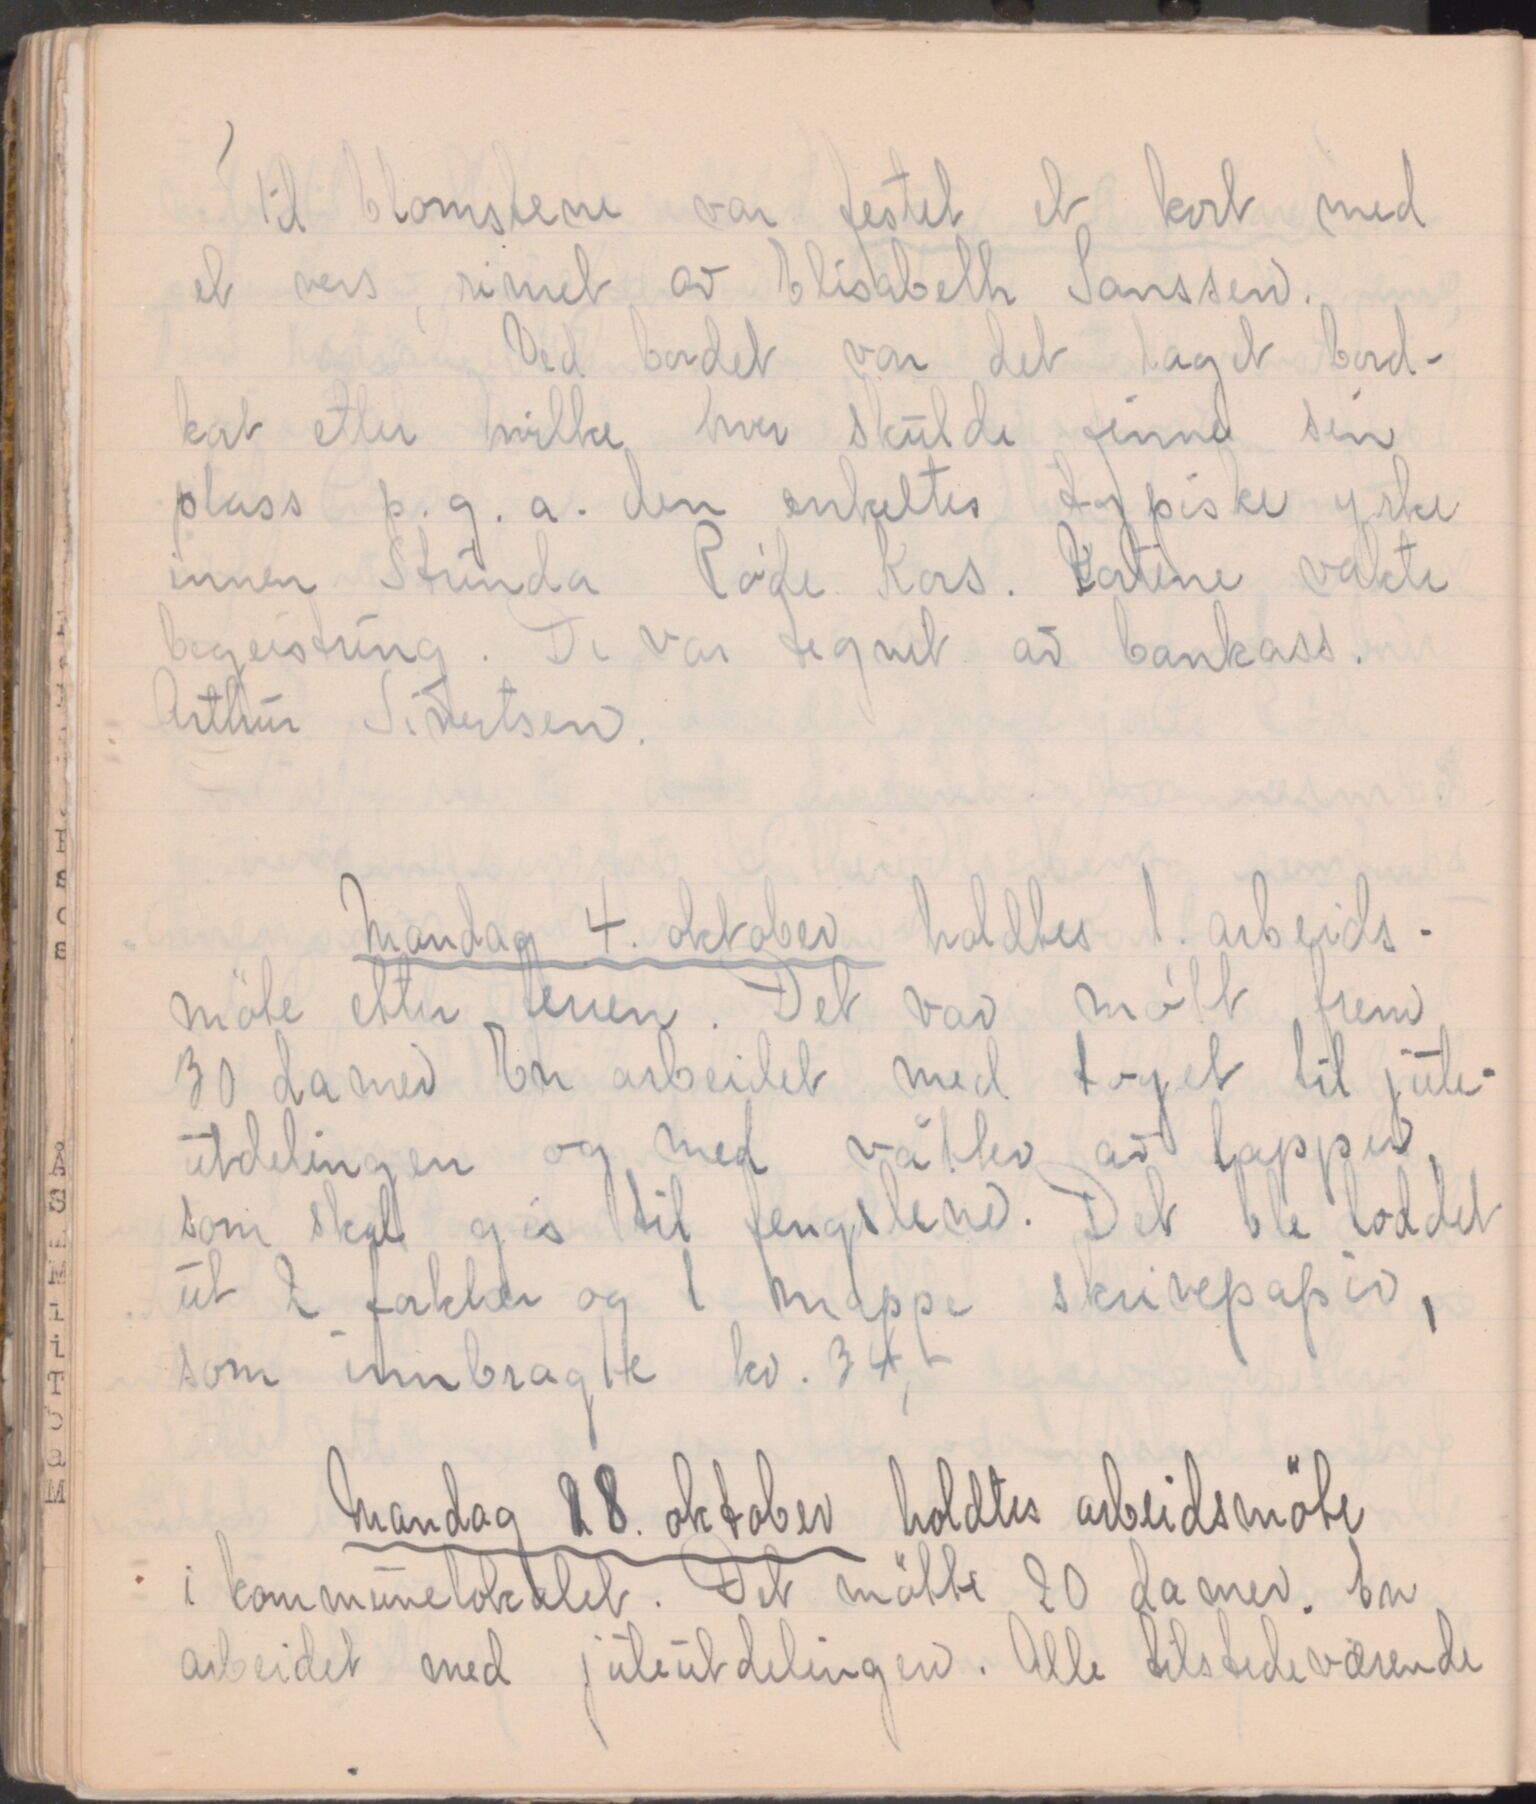 Til blomstene var festet et kort med
et vers, rimet av Elisabeth Janssen.
Ved bordet var det laget bord-
kort etter hvilke hver skulde finne sin
plass p.g.a. den enkeltes typiske yrke
innen Strinda Røde Kors. Kortene vakte
begeistring. De var tegnet av bankass.
Arthur Sivertsen.
Mandag 4. oktober holdtes 1. arbeids-
møte etter ferien. Det var møtt frem
30 damer En arbeidet med tøyet til jule-
utdelingen og med våtter av lapper,
som skal gis til fengslene. Det ble loddet
ut 2 forklær og 1 mappe skrivepapir,
som innbragte kr. 34,-
Mandag 18. oktober holdtes arbeidsmøte
i kommunelokalet. Det møtte 20 damer. En
arbeidet med juleutdelingen. Alle tilstedeværende